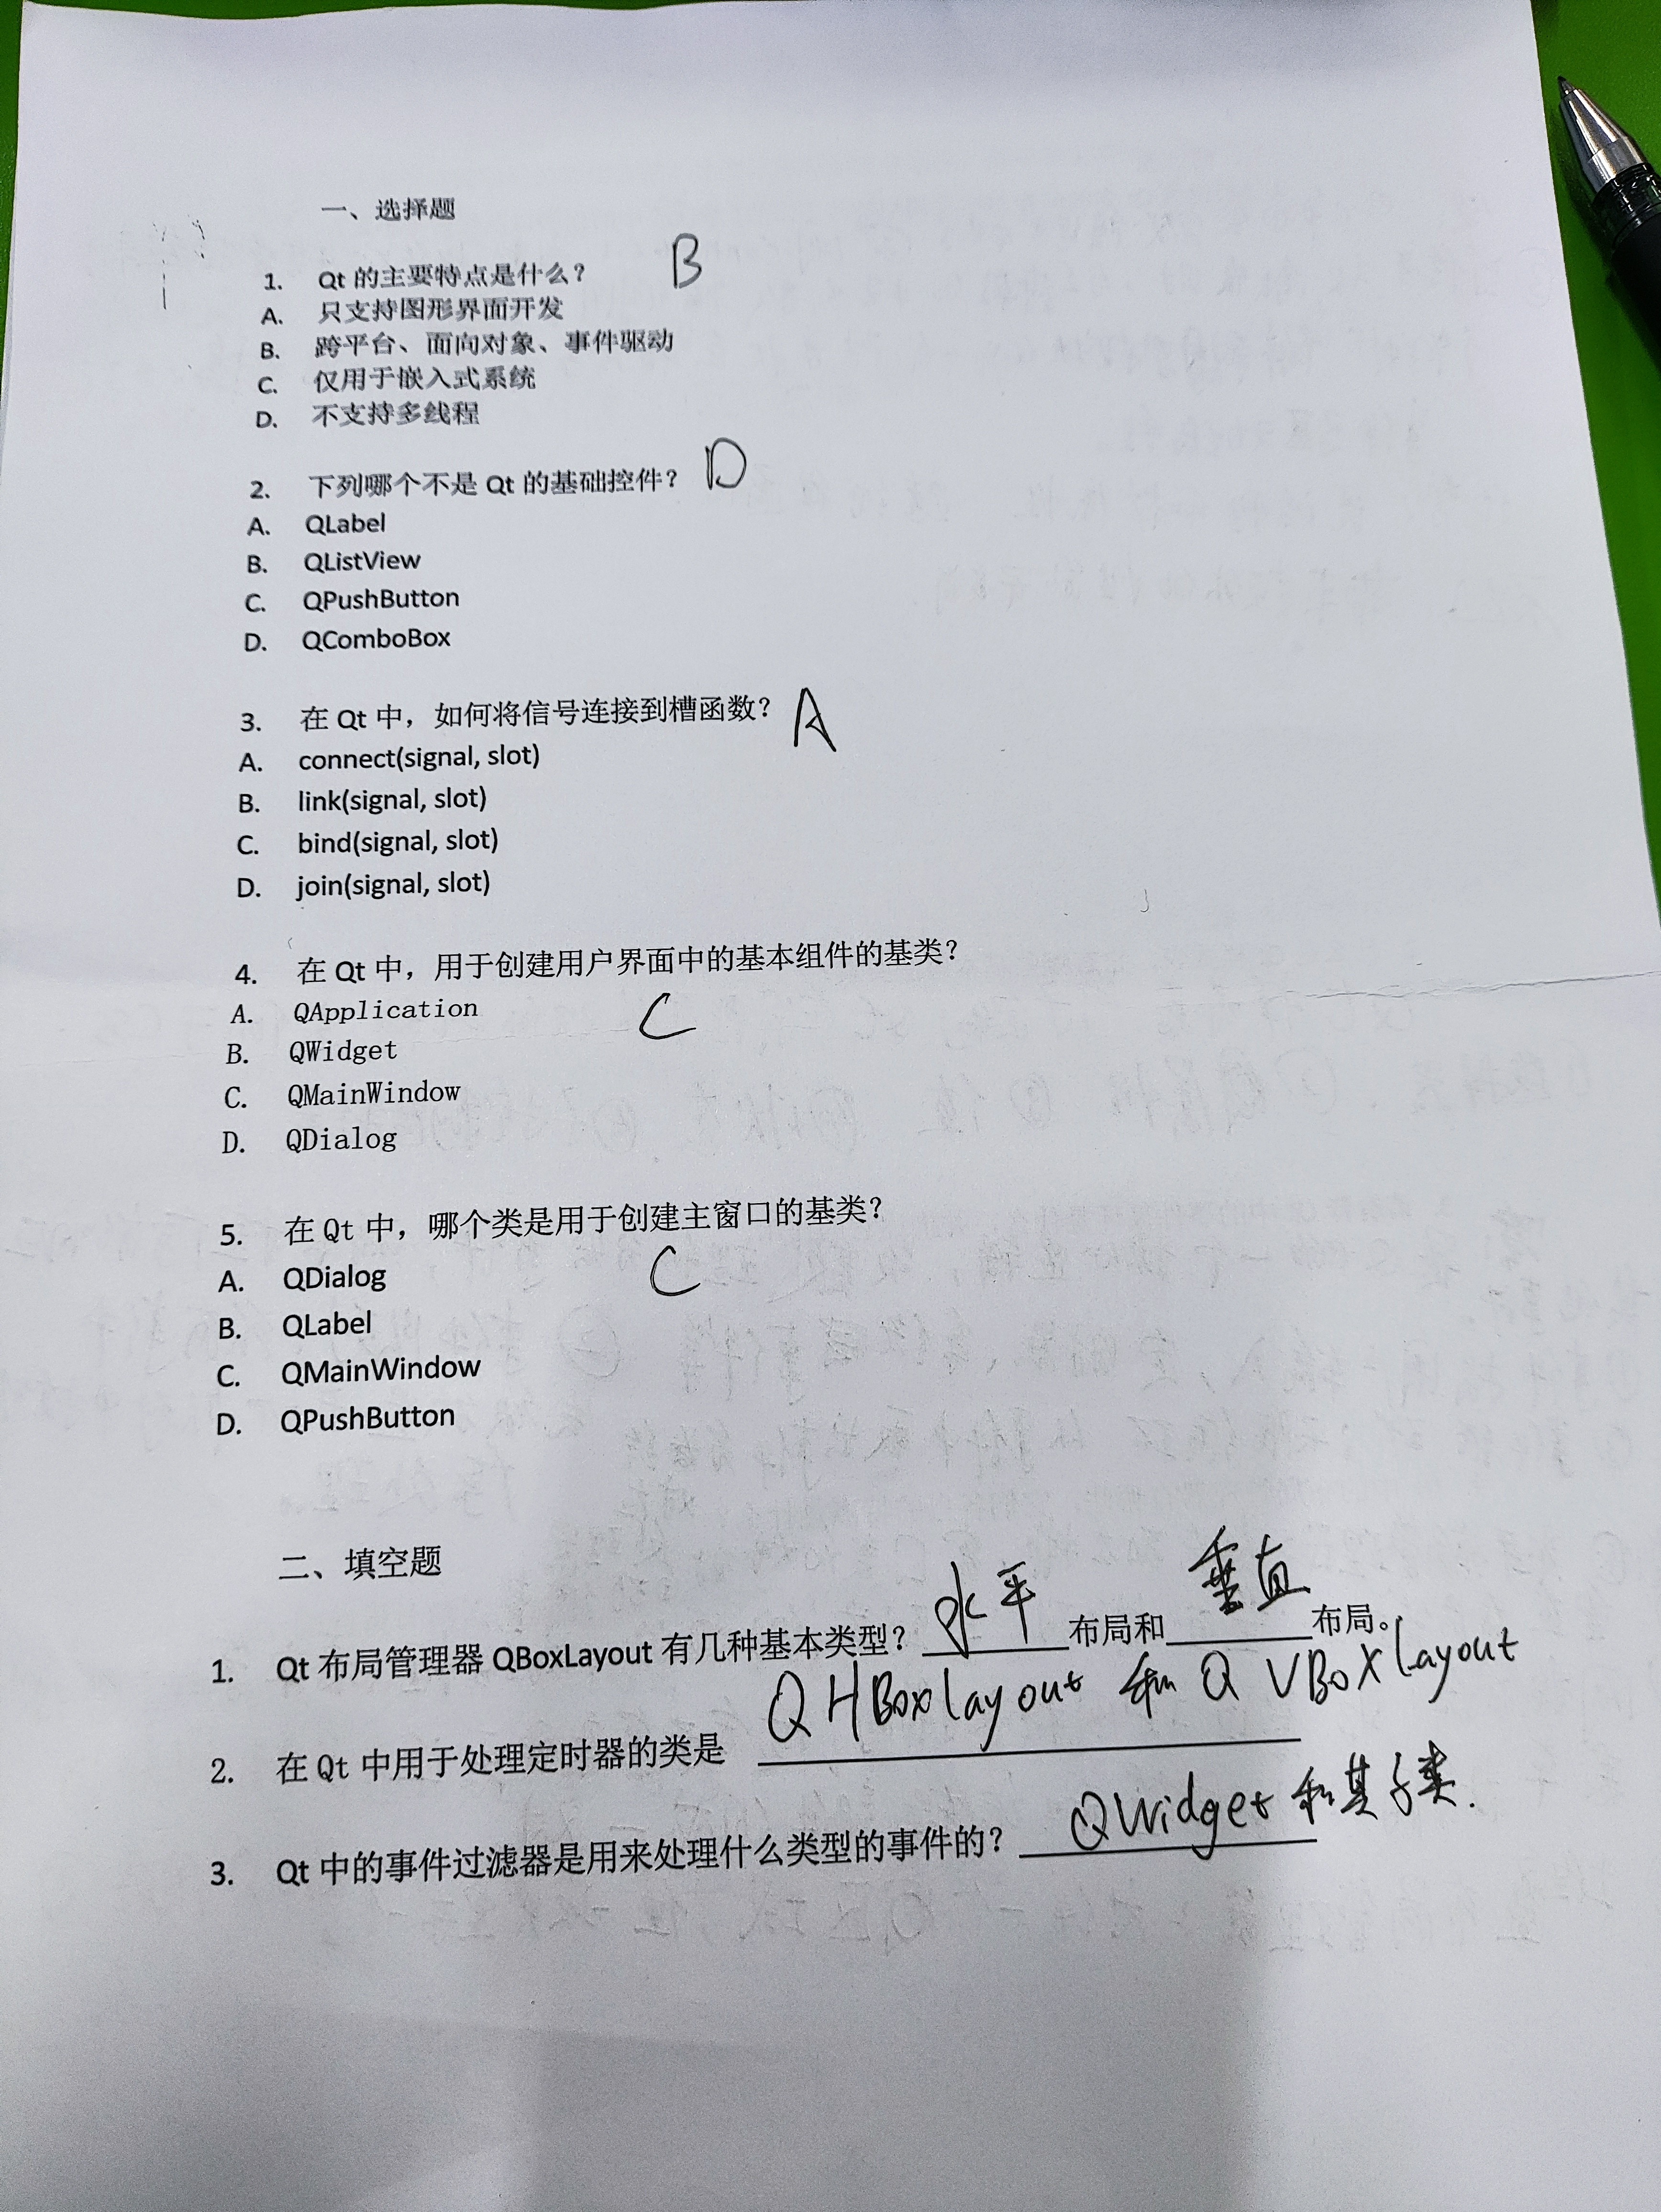 一、选择题
1. Qt 的主要特点是什么？ B
A. 只支持图形界面开发
B. 跨平台、面向对象、事件驱动
C. 仅用于嵌入式系统
D. 不支持多线程
2. 下列哪个不是 Qt 的基础控件？ D
A. QLabel
B. QListView
C. QPushButton
D. QComboBox
3. 在 Qt 中，如何将信号连接到槽函数？ A
A. connect(signal, slot)
B. link(signal, slot)
C. bind(signal, slot)
D. join(signal, slot)
4. 在 Qt 中，用于创建用户界面中的基本组件的基类？
A. QApplication C
B. QWidget
C. QMainWindow
D. QDialog
5. 在 Qt 中，哪个类是用于创建主窗口的基类？
A. QDialog C
B. QLabel
C. QMainWindow
D. QPushButton
二、填空题
1. Qt 布局管理器 QBoxLayout 有几种基本类型？ 水平 布局和 垂直 布局。
2. 在 Qt 中用于处理定时器的类是 QHBoxlayout 和 QVBoxlayout
3. Qt 中的事件过滤器是用来处理什么类型的事件的？ QWidget 和其子类.